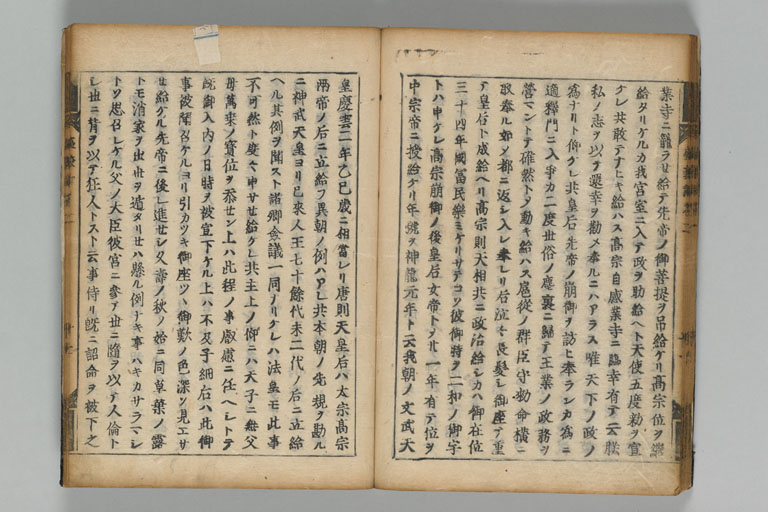 業寺ニ籠ラせ給テ先帝ノ御菩提ヲ吊給ケリ高宗位ヲ継
給タリケルカ我宮室ニ入テ政ヲ助給ヘト天使五度勅ヲ宣
ケレ共敢テナヒキ給ハス高宗自感業寺ニ臨幸有テ云朕
私ノ志ヲ以テ還幸ヲ勧メ奉ルニハアラス唯天下ノ政ノ
為ナリト仰ケレ共皇后先帝ノ崩御ヲ訪ヒ奉ランカ為ニ
適釋門ニ入争カ二度世俗ノ塵裏ニ歸テ王業ノ政務ヲ
営マントテ確然トメ動キ給ハス扈従ノ群臣守勅命横ニ
取奉ル如メ都ニ返シ入レ奉レリ后泣々長髪シ御座テ重
テ皇后ト成給ヘリ高宗則天相共ニ政治給シカハ御在位
三十四年國冨民樂ミケリサテコソ彼御時ヲ二和ノ御宇
トハ申ケレ高宗崩御ノ後皇后女帝トメ廿一年有テ位ヲ
中宗帝ニ授給ケリ年號ヲ神龍元年ト云我朝ノ文武天
皇慶雲二年乙巳歳ニ相當レリ唐則天皇后ハ太宗高宗
両帝ノ后ニ立給フ異朝ノ例ハアレ共本朝ノ先規ヲ勘ル
ニ神武天皇ヨリ已来人王七十餘代未二代ノ后ニ立給
ヘル其例ヲ聞スト諸卿僉議一同ナリケレハ法皇モ此事
不可然ト度々申サせ給ケレ共主上ノ仰ニハ天子ニ無父
母萬乗ノ寶位ヲ忝せン上ハ此程ノ事叡慮ニ任ヘシトテ
既御入内ノ日時ヲ被宣下ケル上ハ不及子細后ハ此御
事被聞召ケルヨリ引カツキ御座ツヽ御歎ノ色深ツ見エサ
せ給ケル先帝ニ後レ進せシ久壽ノ秋ノ始ニ同草葉ノ露
トモ消家ヲ出世ヲ遁タリせハ懸ル例ナキ事ハキカサラマシ
トソ思召レケル父ノ大臣彼宮ニ参テ世ニ随ヲ以テ人倫ト
シ世ニ背ヲ以テ狂人トスト云事侍リ既ニ詔命ヲ被下之